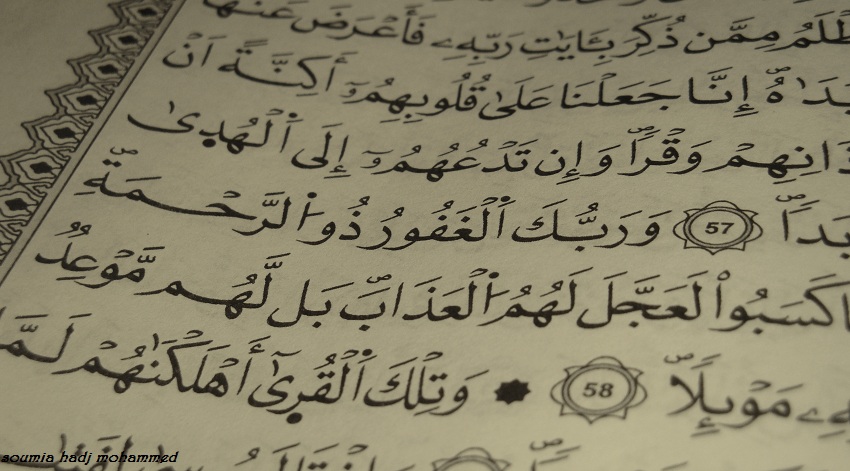 أَظْلَمُ مِمَّن ذُكِّرَ بِـَٔايَٰتِ رَبِّهِۦ فَأَعْرَضَ عَنْهَا
يَدَاهُ إِنَّا جَعَلْنَا عَلَىٰ قُلُوبِهِمُۥٓ أَكِنَّةً أَنْ
ذَانِهِمْ وَقْرًا وَإِن تَدْعُهُمُۥٓ إِلَى أَلْهُدِىٰ
بَدًا 57 وَرَبُّكَ اَلْغَفُورُ ذُو اُ۬لرَّحْمَةِ
كَسَبُواْ لَعَجَّلَ لَهُمُ اُ۬لْعَذَابَ بَل لَّهُم مَّوْعِدٌ
هِۦ مَوْئِلًا 58 وَتِلْكَ اَ۬لْقُرِىٰٓ أَهْلَكْنَٰهُمْ لَمَّا
soumia hadj mohammed